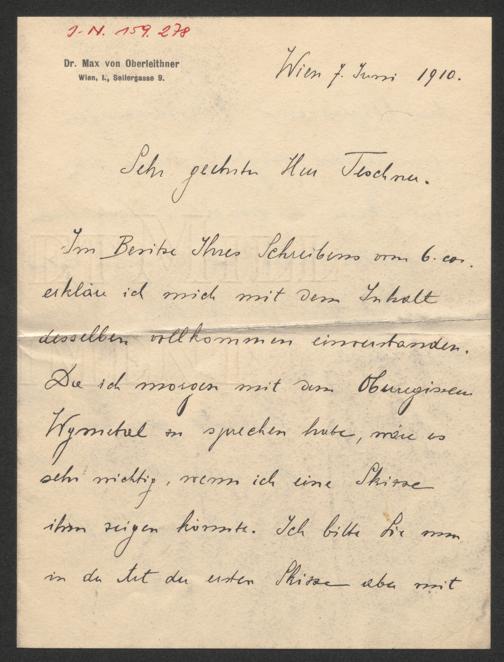 J.N. 159.278
Dr. Max von Oberleithner
Wien, I., Seilergasse 9.
Wien 7. Juni 1910.
Sehr geehrter Herr Teschner.
Im Besitze Ihres Schreibens vom 6. cor.
erkläre ich mich mit dem Inhalt
desselben vollkommen einverstanden.
Da ich morgen mit dem Oberregisseur
Wymetal zu sprechen habe, wäre es
sehr wichtig, wenn ich eine Skizze
ihm zeigen könnte. Ich bitte Sie nun
in der Art der ersten Skizze aber mit